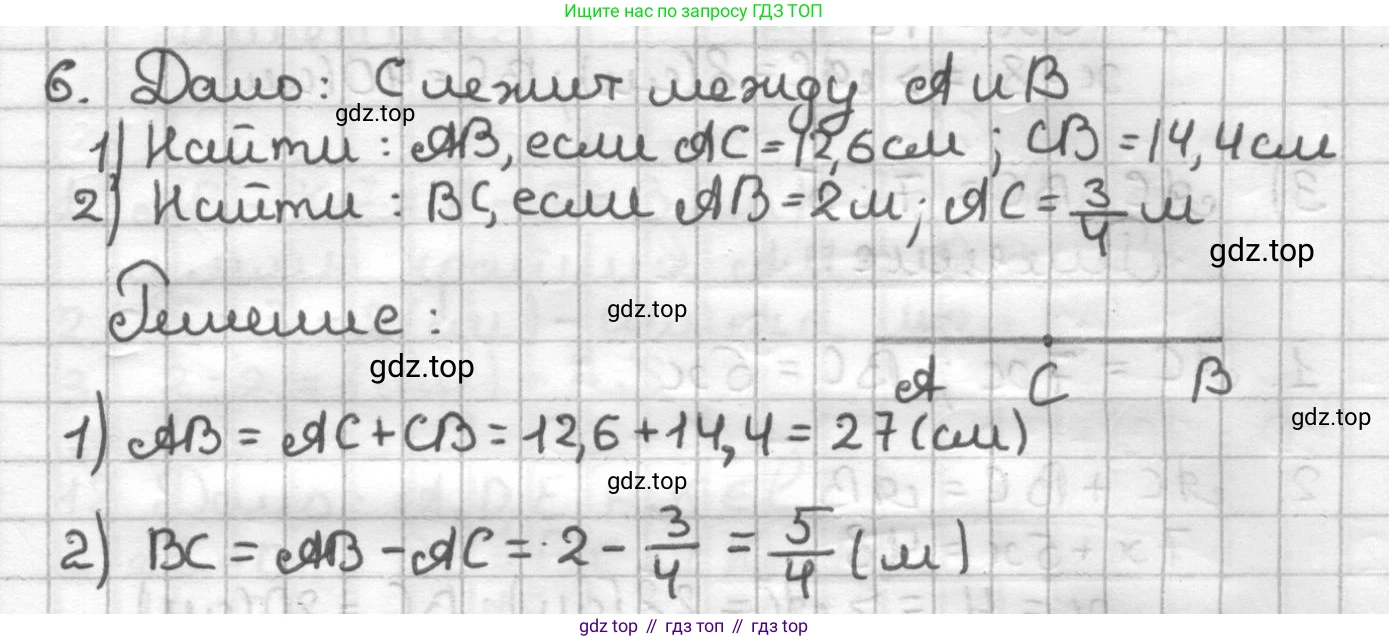 Ищите нас по запросу ГДЗ ТОП
6. Дано: C лежит между A и B
gdz.top
1) Найти: AB, если AC = 12,6 см; CB = 14,4 см
2) Найти: BC, если AB = 2 м; AC = 3/4 м
gdz.top
Решение:
gdz.top
gdz.top
A C B
gdz.top
1) AB = AC + CB = 12,6 + 14,4 = 27 (см)
gdz.top
2) BC = AB - AC = 2 - 3/4 = 5/4 (м)
gdz top // гдз топ // гдз top